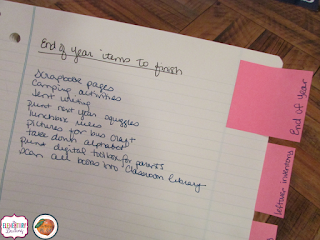 End of year items to finish
Scrapbook pages
Camping activities
Sent writing
print next year squiggles
lunchbox menu
pictures for bus craft
take down alphabet
print digital toolbox for parents
scan all books into Classroom Library
End of Year
Leftover inventory
Elementary